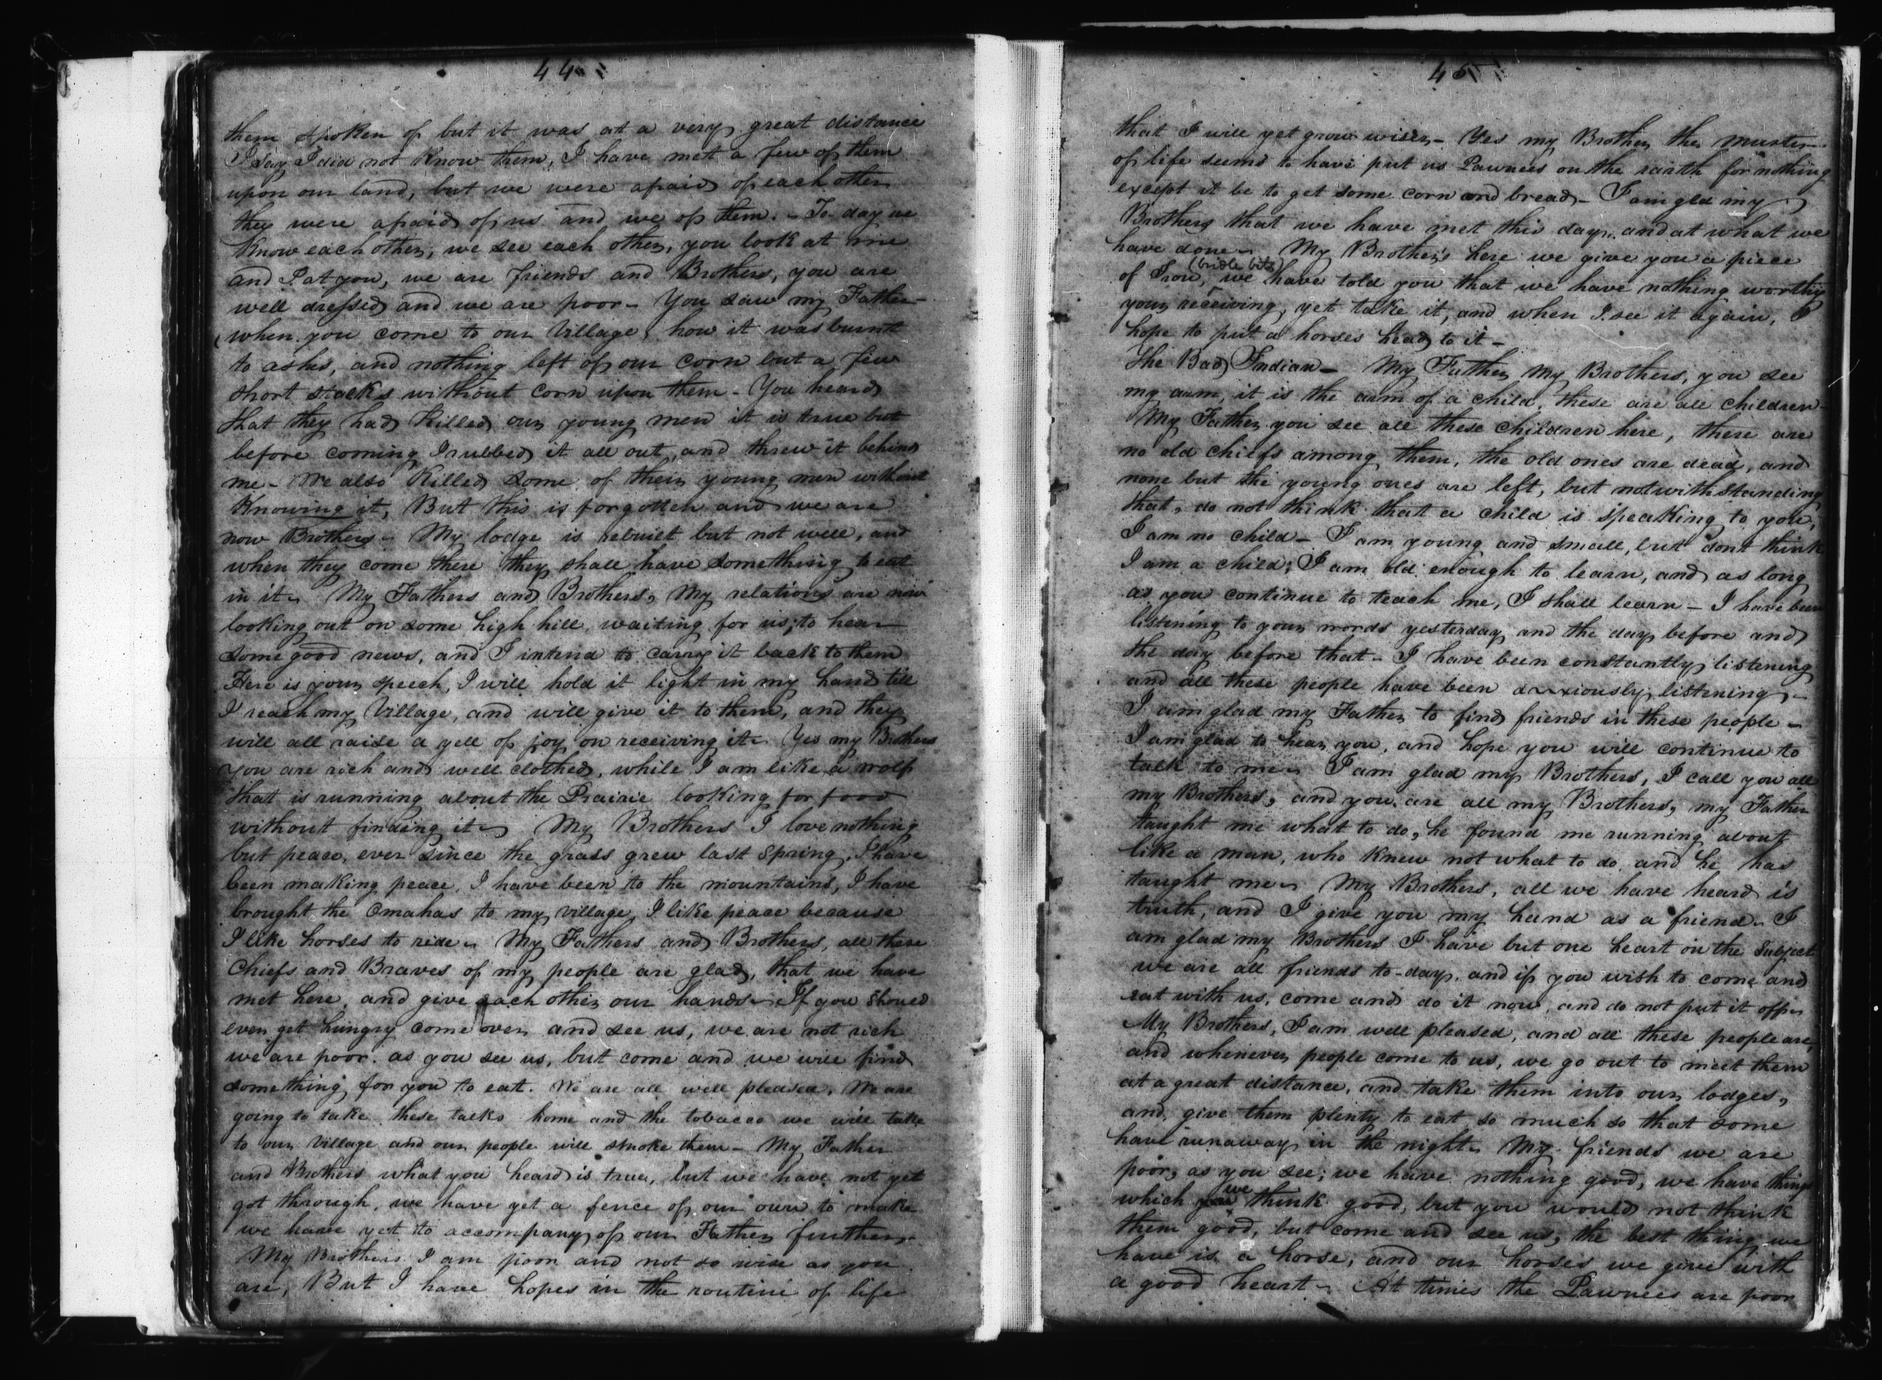 44
them spoken of but it was at a very great distance
I say I did not know them, I have met a few of them
upon our land, but we were afraid of each other
they were afraid of us and we of them. - To day we
know each other, we see each other, you look at me
and I at you, we are friends and Brothers, you are
well dressed and we are poor - You saw my Father
when you come to our Village, how it was burnt
to ashes, and nothing left of our corn but a few
short stalks without corn upon them - You heard
that they had killed our young men it is true but
before coming I rubbed it all out, and threw it behind
me - We also killed some of their young men without
knowing it, But this is forgotten and we are
now Brothers - My lodge is rebuilt but not well, and
when they come there they shall have something to eat
in it - My Fathers and Brothers, My relations are now
looking out on some high hill waiting for us, to hear
some good news, and I intend to carry it back to them
Here is your speech, I will hold it tight in my hand till
I reach my Village, and will give it to them, and they
will all raise a yell of joy on receiving it - Yes my Brothers
you are rich and well clothed, while I am like a wolf
that is running about the Prairie looking for food
without finding it - My Brothers I love nothing
but peace, ever since the grass grew last Spring, I have
been making peace, I have been to the mountains, I have
brought the Omahas to my village, I like peace because
I like horses to ride - My Fathers and Brothers, all these
Chiefs and Braves of my people are glad, that we have
met here, and give each other our hands - If you should
ever get hungry come over and see us, we are not rich
we are poor as you see us, but come and we will find
something for you to eat. We are all well pleased, We are
going to take these talks home and the tobacco we will take
to our village and our people will smoke them - My Father
and Brothers what you heard is true, but we have not yet
got through, we have yet a fence of our own to make
we have yet to accompany of our Father further -
My Brothers I am poor and not so wise as you
are, But I have hopes in the routine of life
45
that I will yet grow wiser - Yes my Brother the Master
of life seems to have put us Pawnees on the earth for nothing
except it be to get some corn and bread - I am glad my
Brothers that we have met this day, and at what we
have done - My Brothers here we give you a piece
of Iron, (bridle bits) we have told you that we have nothing worthy
your receiving, yet take it, and when I see it again, I
hope to put a horses head to it -
The Bad Indian - My Father My Brothers, you see
my arm, it is the arm of a child, these are all children -
My Father you see all these children here, there are
no old chiefs among them, the old ones are dead, and
none but the young ones are left, but notwithstanding
that, do not think that a child is speaking to you,
I am no child - I am young and small, but dont think
I am a child, I am old enough to learn, and as long
as you continue to teach me, I shall learn - I have been
listening to your words yesterday and the day before and
the day before that - I have been constantly listening
and all these people have been anxiously listening -
I am glad my Father to find friends in these people -
I am glad to hear you, and hope you will continue to
talk to me - I am glad my Brothers, I call you all
my Brothers, and you are all my Brothers, my Father
taught me what to do, he found me running about
like a man, who knew not what to do and he has
taught me - My Brothers, all we have heard is
truth, and I give you my hand as a friend - I
am glad my Brothers I have but one heart on the subject
we are all friends to-day, and if you wish to come and
eat with us, come and do it now, and do not put it off -
My Brothers, I am well pleased, and all these people are,
and whenever people come to us, we go out to meet them
at a great distance, and take them into our lodges,
and give them plenty to eat so much so that some
have runaway in the night - My friends we are
poor, as you see; we have nothing good, we have things
which we think good, but you would not think
them good, but come and see us, the best thing we
have is a horse, and our horses we give with
a good heart - At times the Pawnees are poor